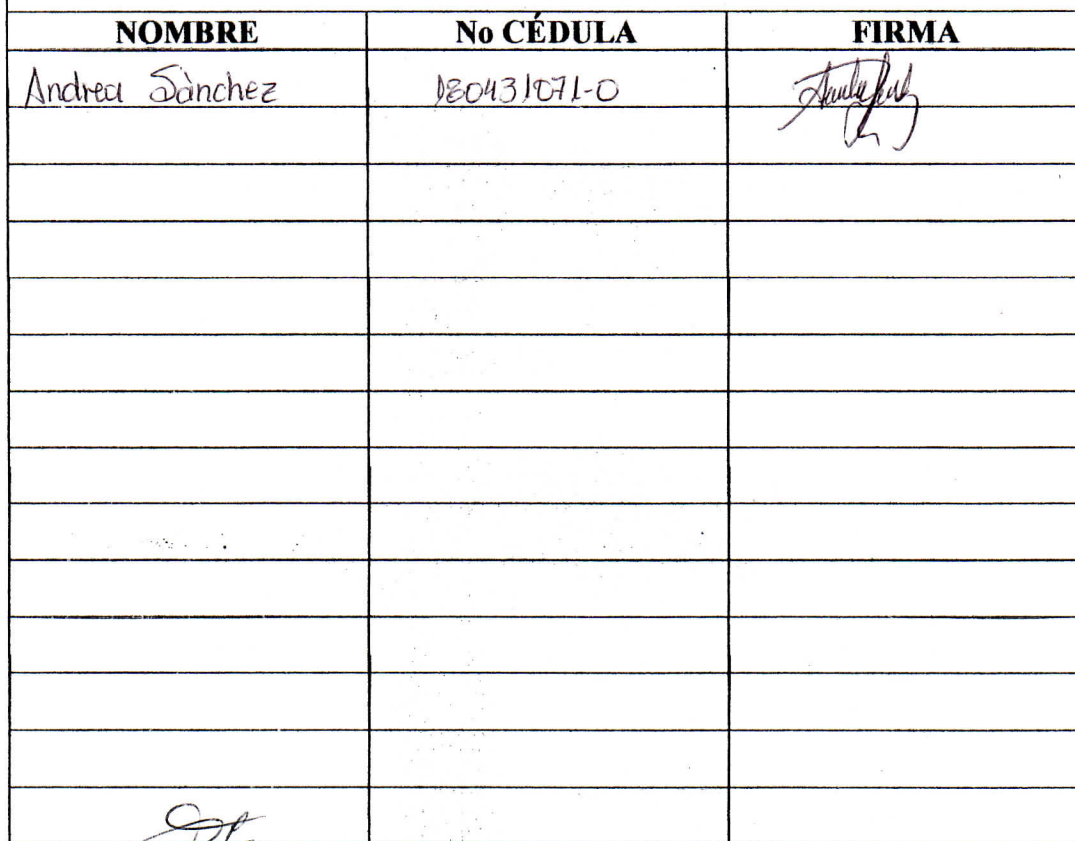 NOMBRE No CÉDULA FIRMA
Andrea Sànchez 180431071-0